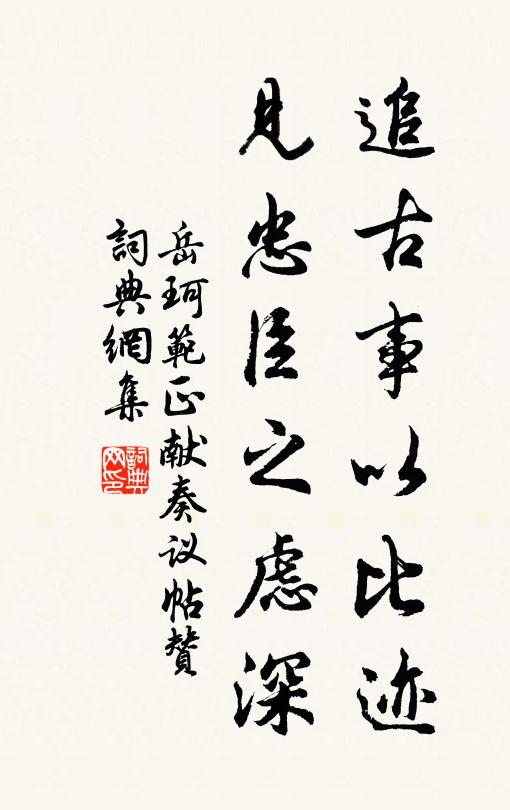 追古事以比迹
見忠臣之慮深
岳珂範正献奏议帖贊
詞典網集
詞典网印